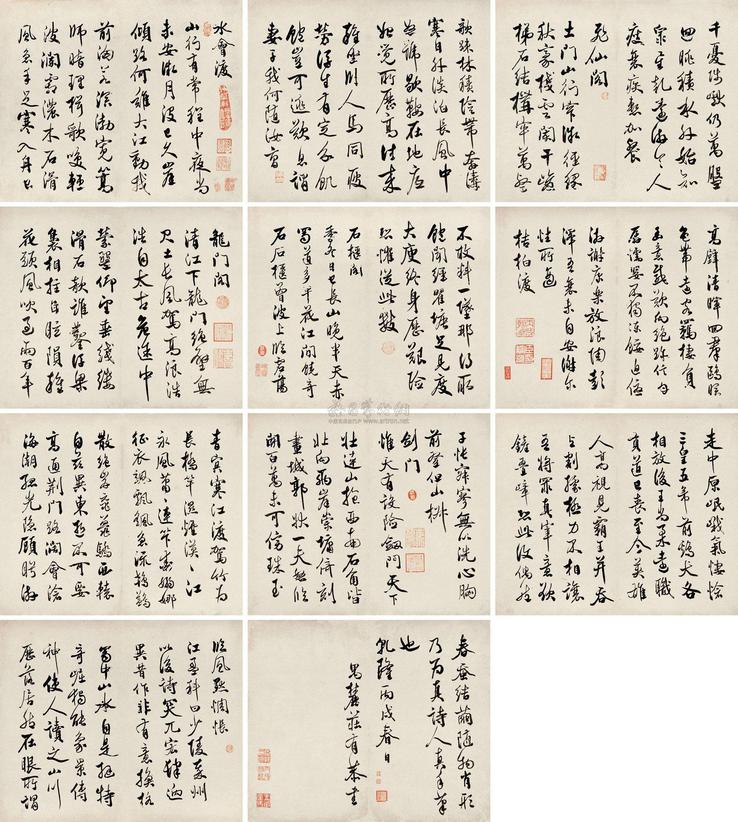 水會渡
山行有常程中夜尚
未安微月没已久崖
傾路何難大江動我
前洶若溟渤寬篙
師暗理楫歌笑輕
波瀾霜濃木石滑
風急手足寒入舟已
千憂陟巘仍萬盤
迴眺積水外始知
衆星乾遠遊令人
瘦衰疾慙加餐
飛仙閣
土門山行窄微徑緣
秋毫棧雲闌干峻
梯石結構牢萬壑
歌疎林積陰帶奔濤
寒日外淡泊長風中
怒號歇鞍在地底
始覺所歷高往來
雜坐臥人馬同疲
勞浮生有定分飢
飽豈可逃歎息謂
妻子我何隨汝曹
龍門閣
清江下龍門絕壁無
尺土長風駕高浪浩
浩自太古危途中
縈盤仰望垂線縷
滑石欹誰鑿浮梁
裊相拄目眩隕雜
花頭風吹過雨百年
不敢料一墜那得取
飽聞經瞿塘足見度
大庾終身歷艱險
恐懼從此數
石櫃閣
季冬日已長山晚半天赤
蜀道多早花江間饒奇
石石櫃曾波上臨虛蕩
高壁清暉回羣鷗暝
色帶遠客羈棲負
幽意感歎向絕跡信甘
孱懦嬰不獨凍餒迫優
游謝康樂放浪陶彭
澤吾衰未自安謝爾
性所適
桔柏渡
青冥寒江渡駕竹為
長橋竿濕煙漠漠江
永風蕭蕭連笮動嫋娜
征衣颯飄颻急流鴇鷁
散絕岸黿鼉驕西轅
自茲異東逝不可要
高通荊門路闊會滄
海潮孤光隱顧盼游
子悵寂寥無以洗心胸
前登但山椒
劍門
惟天有設險劍門天下
壯連山抱西南石角皆
北向兩崖崇墉倚刻
畫城郭狀一夫怒臨
關百萬未可傍珠玉
走中原岷峨氣悽愴
三皇五帝前雞犬各
相放後王尚柔遠職
貢道已喪至今英雄
人高視見霸王并吞
與割據極力不相讓
吾將罪真宰意欲
鏟疊嶂恐此復偶然
臨風默惆悵
江盈科曰少陵秦州
以後詩突兀宏肆迥
異昔作非有意換格
蜀中山水自是挺特
奇崛獨能象景傳
神使人讀之山川
歷落居然在眼所謂
春蠶結繭隨物肖形
乃為真詩人真手筆
也
乾隆丙戌春日
禺麓莊有恭書